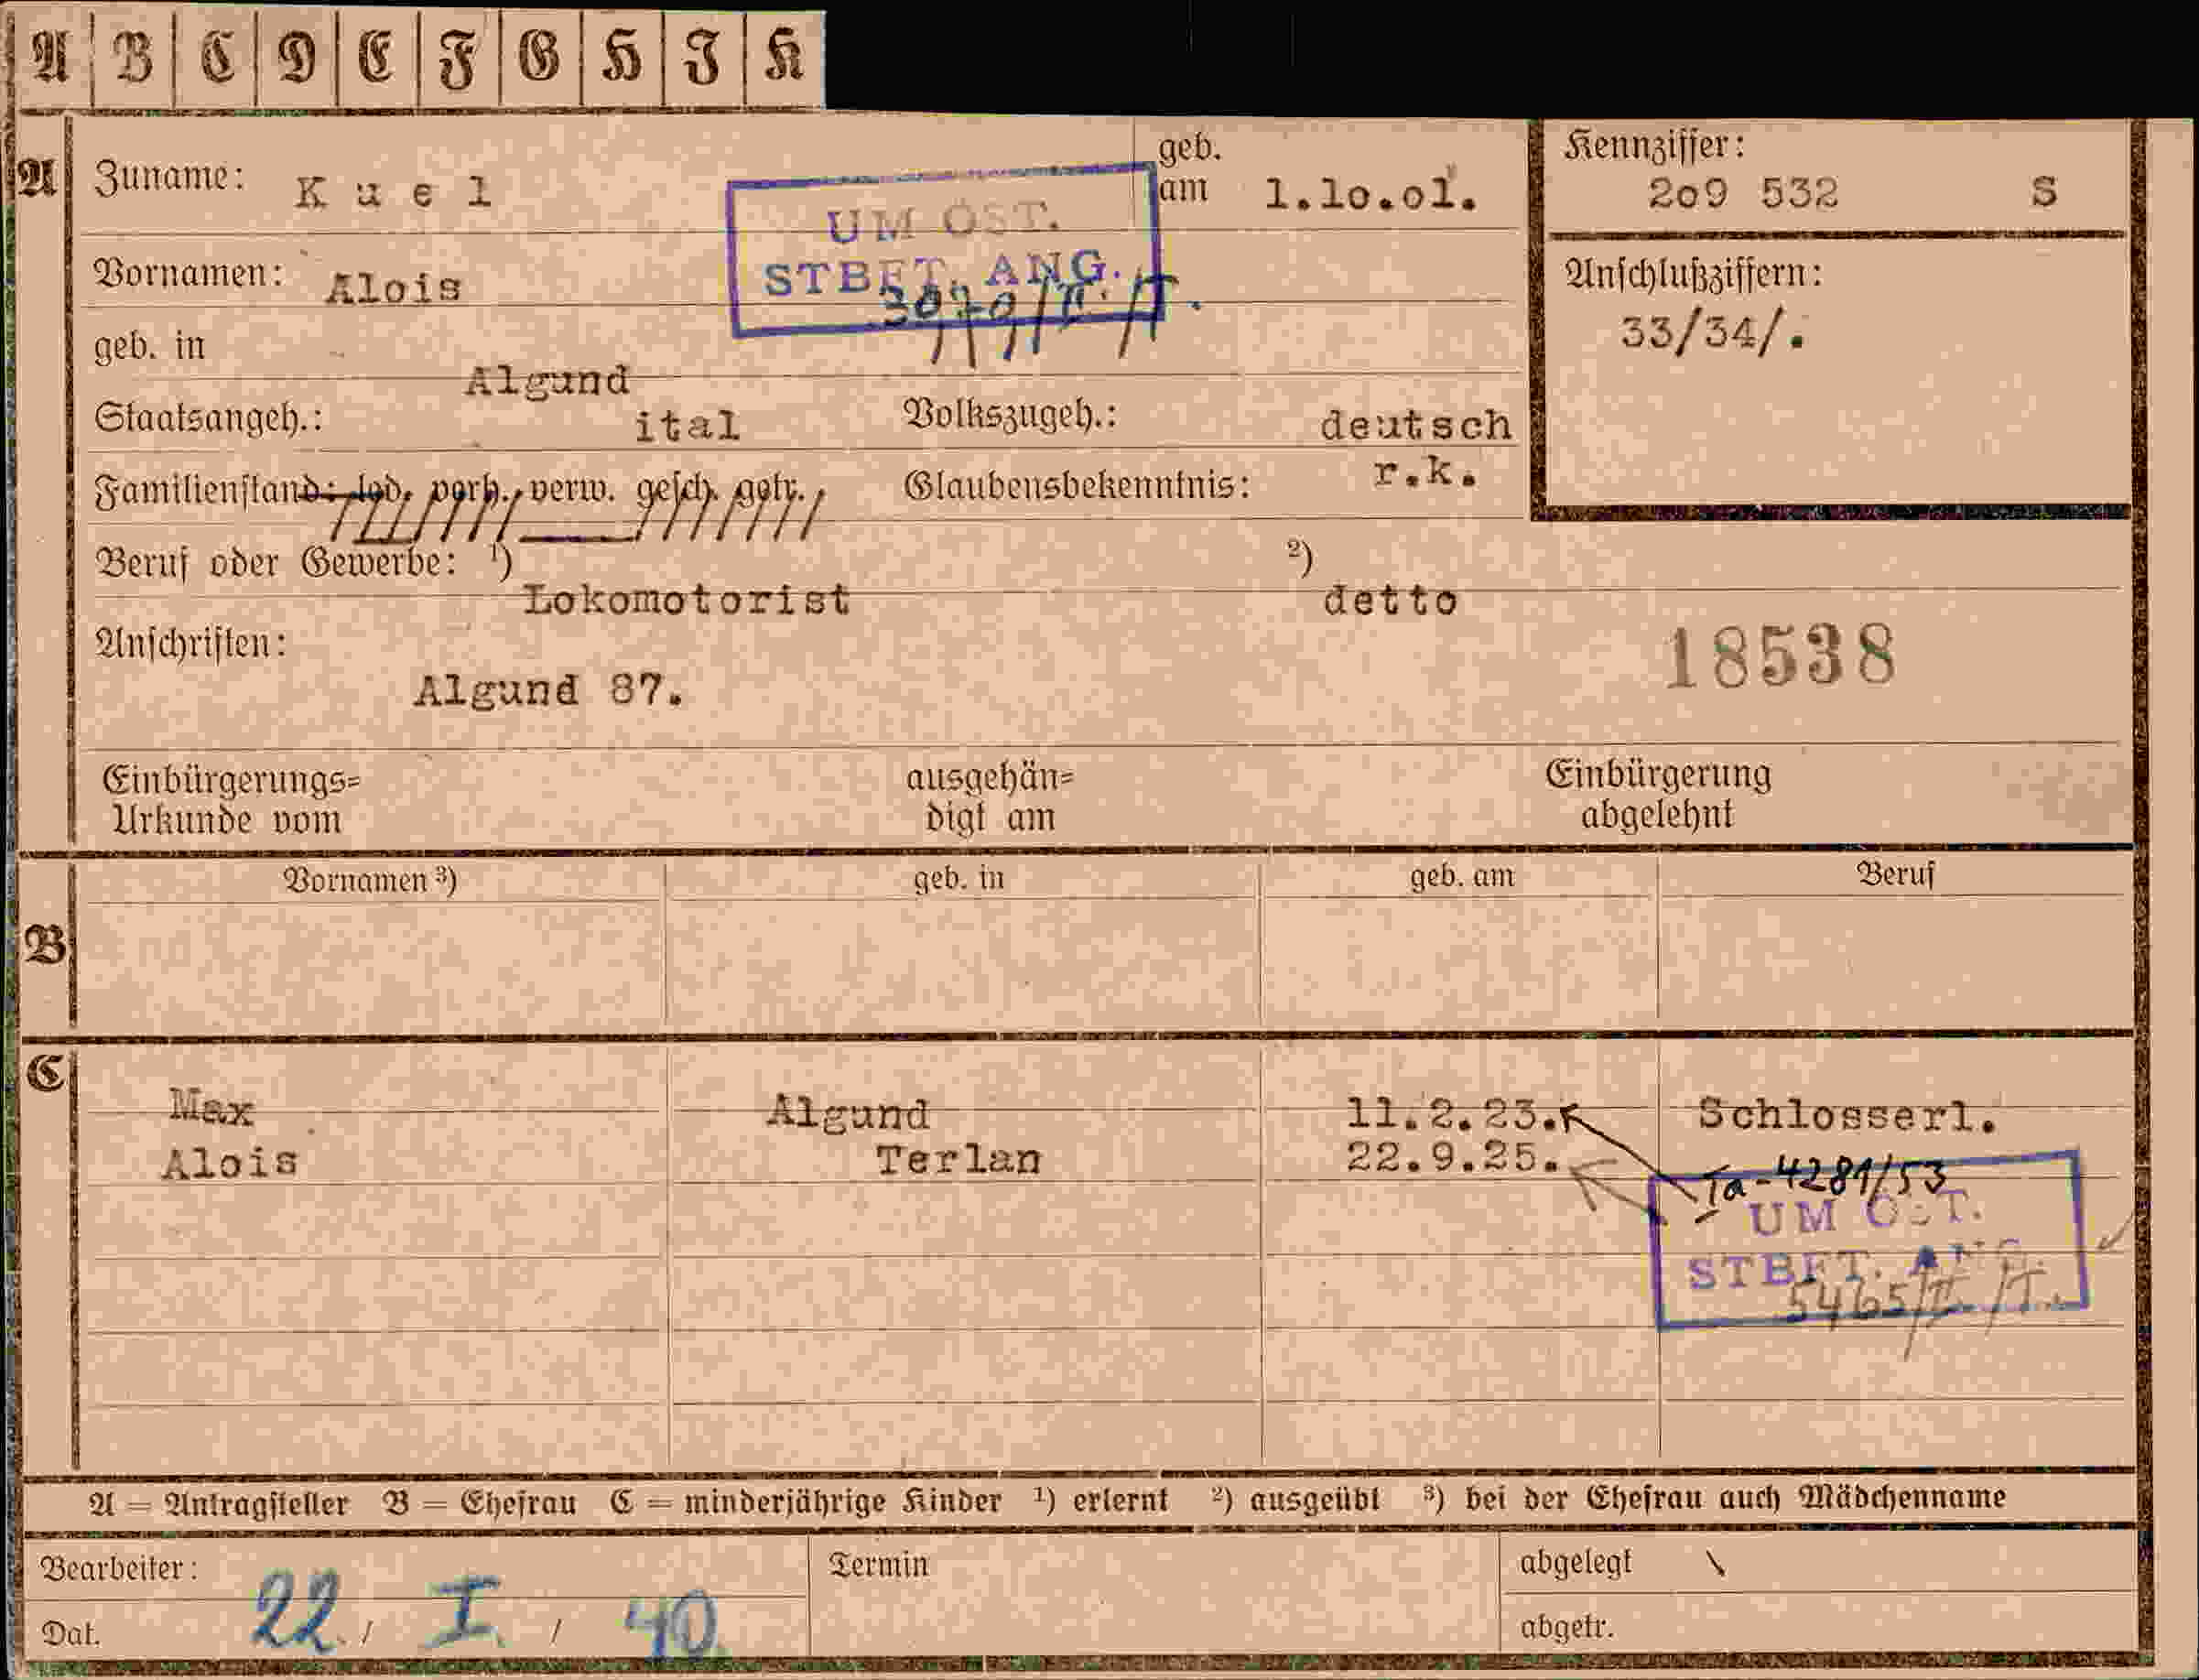 A B C D E F G H I K
A Zuname: Kuel geb. am 1.lo.ol. Kennziffer: 2o9 532 S
UM ÖST.
STBET. ANG.
Vornamen: Alois
Anschlußziffern:
33/34/.
geb. in Algund
Staatsangeh.: ital Volkszugeh.: deutsch
Familienstand: led. verh. verw. gesch. getr. Glaubensbekenntnis: r.k.
Beruf oder Gewerbe: ¹) Lokomotorist ²) detto
Anschriften:
18538
Algund 87.
Einbürgerungs= Urkunde vom
ausgehän= digt am
Einbürgerung abgelehnt
Vornamen ³) geb. in geb. am Beruf
B
C
Max Algund 11.2.23. Schlosserl.
Alois Terlan 22.9.25.
Ta-4281/53
UM ÖST.
STBET. ANG.
5465/II /T.
A = Antragsteller B = Ehefrau C = minderjährige Kinder ¹) erlernt ²) ausgeübt ³) bei der Ehefrau auch Mädchenname
Bearbeiter: Termin abgelegt
Dat. 22. / I. / 40 abgetr.